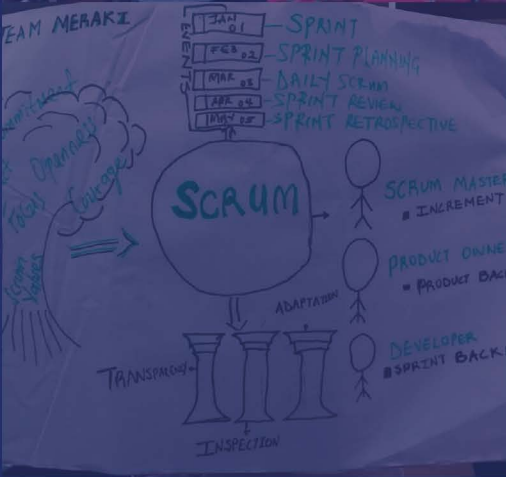 TEAM MERAKI
EVENTS
JAN 01 SPRINT
FEB 02 SPRINT PLANNING
MAR 03 DAILY SCRUM
APR 04 SPRINT REVIEW
MAY 05 SPRINT RETROSPECTIVE
Openness
Focus
Courage
Scrum Values
SCRUM
SCRUM MASTER
INCREMENT
PRODUCT OWNE
PRODUCT BACK
ADAPTATION
DEVELOPER
SPRINT BACK
TRANSPARENCY
INSPECTION